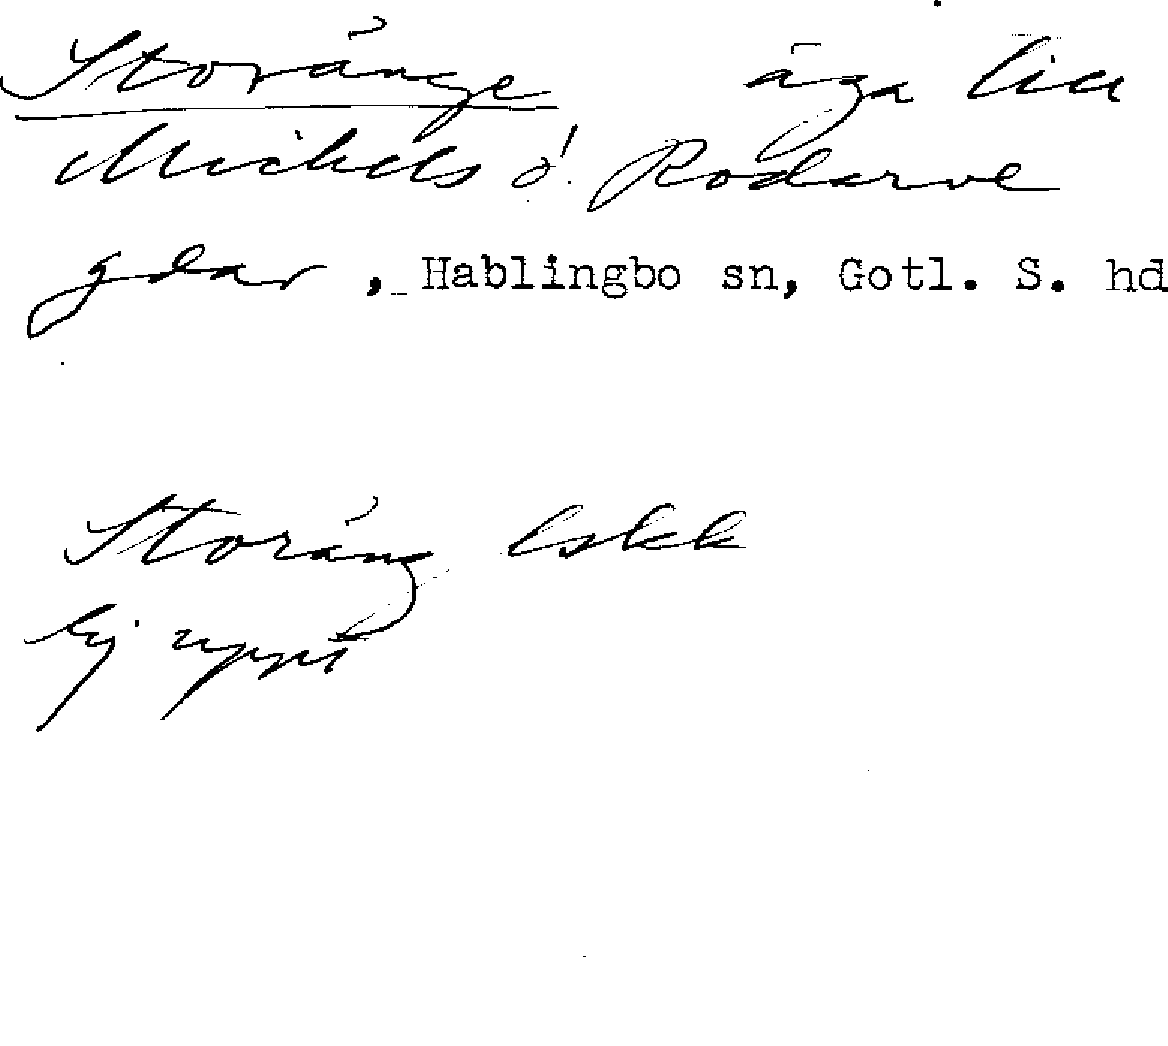 Storänge äga till
Michels o. Rodarve
gdar, Hablingbo sn, Gotl. S. hd
Storäng
Ej uppt